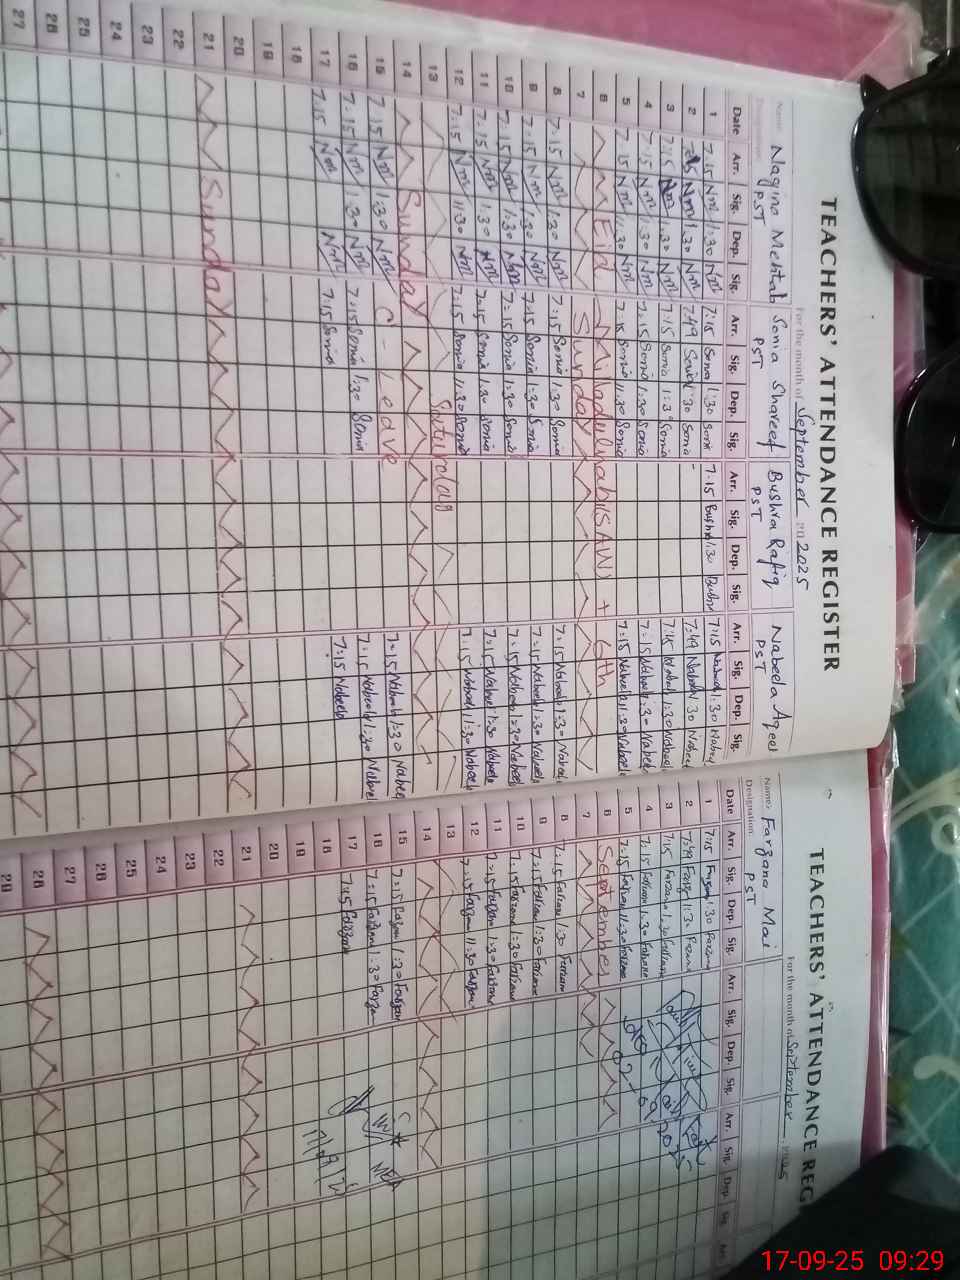 TEACHERS' ATTENDANCE REGISTER
For the month of September 2025
Name: Nagina Mehtab Sonia Shareef Bushra Rafiq Nabeela Aqeel
PST PST PST PST
Date Arr. Sig. Dep. Sig. Arr. Sig. Dep. Sig. Arr. Sig. Dep. Sig. Arr. Sig. Dep. Sig.
1 7:15 Nm 1:30 Nm 7:15 Sonia 1:30 Sonia 7:15 Bushra 1:30 Bushra 7:15 Nabeel 1:30 Nabeel
2 Nm 1:30 Nm 7:49 Sonia 1:30 Sonia 7:49 Nabeel 1:30 Nabeel
3 7:15 Nm 1:30 Nm 7:15 Sonia 1:30 Sonia 7:15 Nabeel 1:30 Nabeel
4 7:15 Nm 1:30 Nm 7:15 Sonia 1:30 Sonia 7:15 Nabeel 1:30 Nabeel
5 7:15 Nm 11:30 Nm 7:15 Sonia 11:30 Sonia 7:15 Nabeela 11:30 Nabeel
6 Eid Miladulnabi(SAW) + 6th
7 Sunday
8 7:15 Nm 1:30 Nm 7:15 Sonia 1:30 Sonia 7:15 Nabeel 1:30 Nabeel
9 7:15 Nm 1:30 Nm 7:15 Sonia 1:30 Sonia 7:15 Nabeel 1:30 Nabeel
10 7:15 Nm 1:30 Nm 7:15 Sonia 1:30 Sonia 7:15 Nabeel 1:30 Nabeel
11 7:15 Nm 1:30 Nm 7:15 Sonia 1:30 Sonia 7:15 Nabeel 1:30 Nabeel
12 7:15 Nm 11:30 Nm 7:15 Sonia 11:30 Sonia 7:15 Nabeel 11:30 Nabeel
13 Saturday
14 Sunday
15 7:15 Nm 1:30 Nm C - Leave 7:15 Nabeel 1:30 Nabeel
16 7:15 Nm 1:30 Nm 7:15 Sonia 1:30 Sonia 7:15 Nabeela 1:30 Nabeel
17 7:15 Nm Nm 7:15 Sonia 7:15 Nabeela
18
19
20
21 Sunday
22
23
24
25
26
27
TEACHERS' ATTENDANCE REG
For the month of September
Name: Farzana Mai
Designation: PST
Date Arr. Sig. Dep. Sig. Arr. Sig. Dep. Sig. Arr. Sig. Dep. Sig. Arr.
1 7:15 Farzana 1:30 Farzana
2 7:49 1:30 Farzana
3 7:15 Farzana 1:30 Farzana
4 7:15 Farzana 1:30 Farzana
5 7:15 Farzana 11:30 Farzana
02-09-2025
6 September
7
8 7:15 Farzana 1:30 Farzana
9 7:15 Farzana 1:30 Farzana
10 7:15 Farzana 1:30 Farzana
11 7:15 Farzana 1:30 Farzana
12 7:15 Farzana 11:30 Farzana
13
14
15 7:15 Farzana 1:30 Farzana
16 7:15 Farzana 1:30 Farzana
MEA
17 7:15 Farzana
18
19
20
21
22
23
24
25
26
27
28
29
17-09-25 09:29